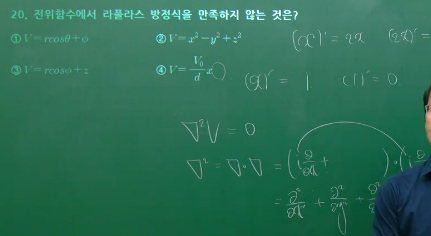 20. 전위함수에서 라플라스 방정식을 만족하지 않는 것은?
① V = rcosθ + ϕ ② V = x² − y² + z²
③ V = rcosϕ + z ④ V = V₀/d x
(x²)' = 2x (2x)' =
(x)' = 1 (1)' = 0
∇²V = 0
∇² = ∇·∇ = (∂/∂x + )·(
= ∂²/∂x² + ∂²/∂y² +